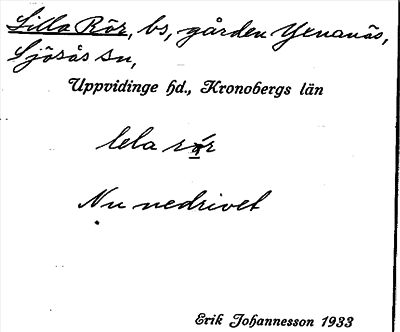 Lilla Rör, bs, gården Yxnanäs,
Sjösås sn,
Uppvidinge hd., Kronobergs län
lela rör
Nu nedrivet
Erik Johannesson 1933